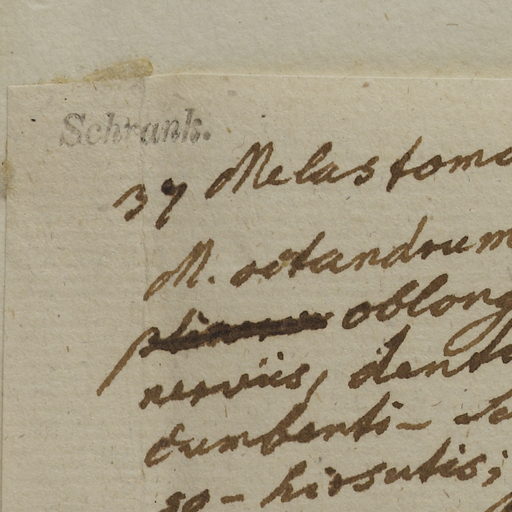 Schrank.
37 Melastoma
M. octandrum
oblong
nerviis, denta
cumbenti-
so-hirsutis;